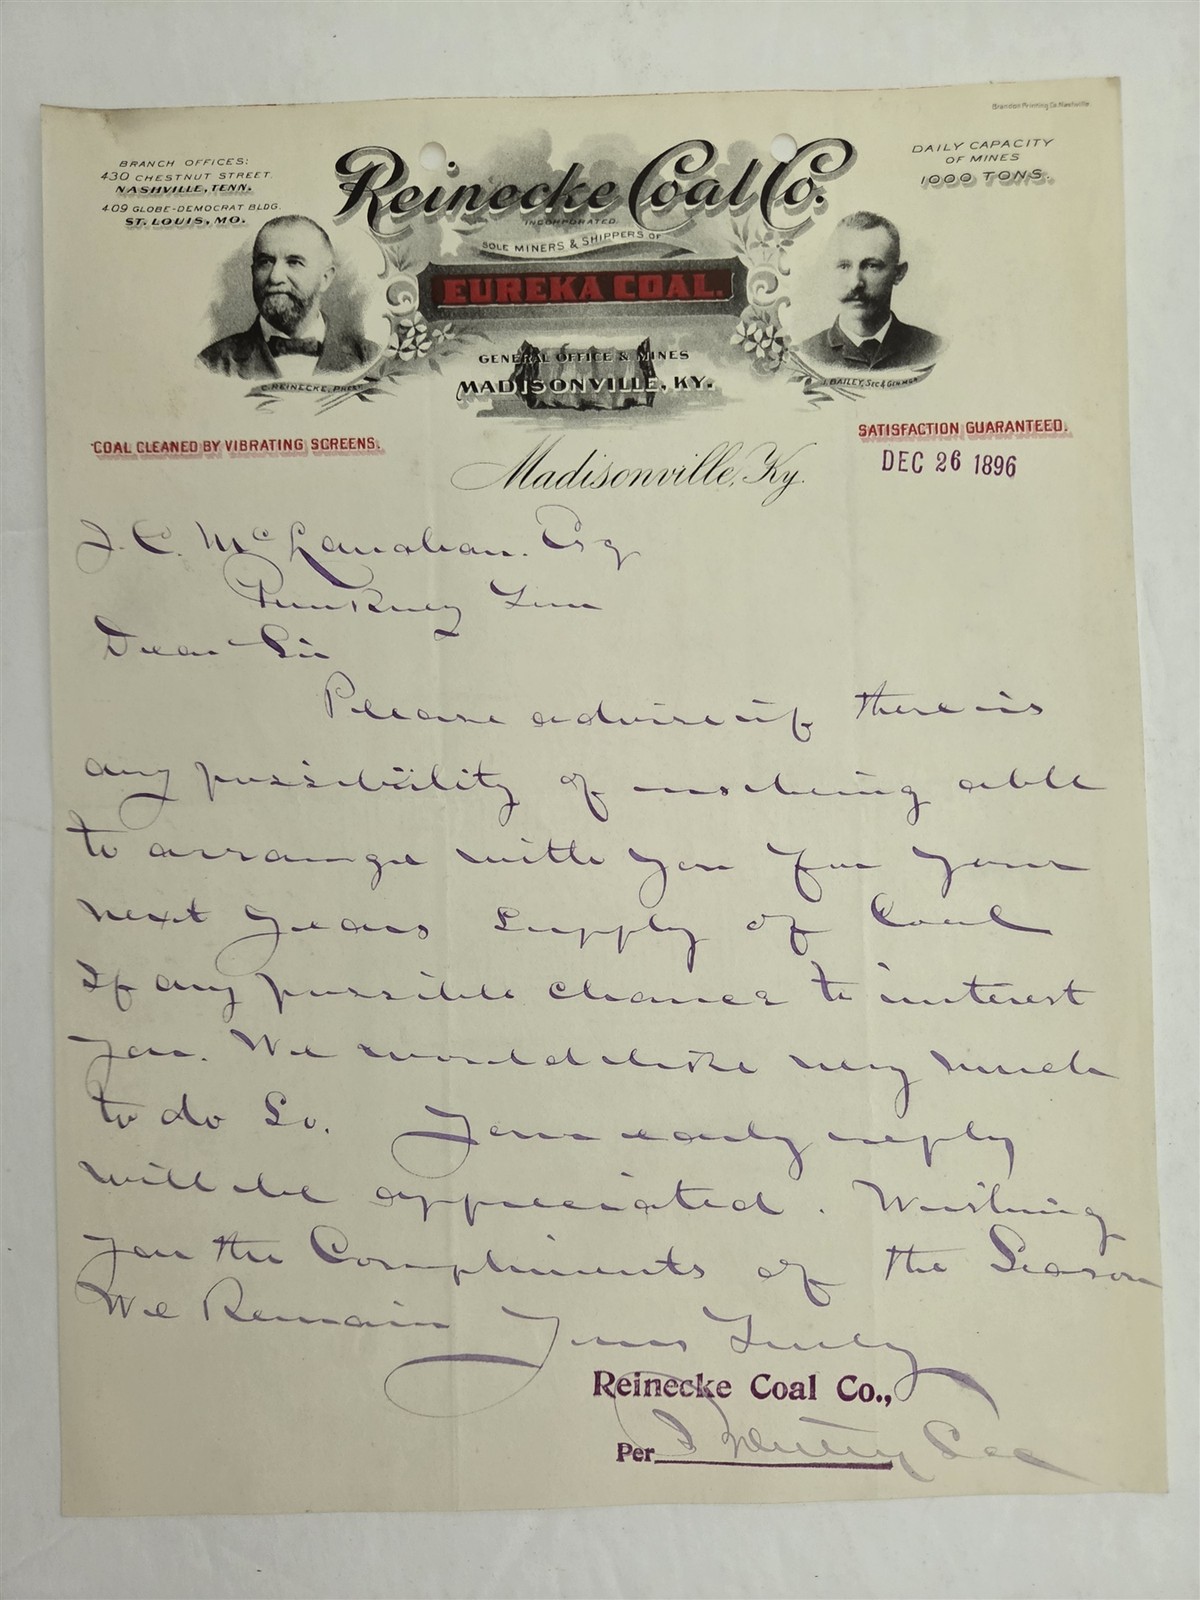 Brandon Printing Co. Nashville.
BRANCH OFFICES:
430 CHESTNUT STREET.
NASHVILLE, TENN.
409 GLOBE-DEMOCRAT BLDG.
ST. LOUIS, MO.
Reinecke Coal Co.
INCORPORATED.
SOLE MINERS & SHIPPERS OF
EUREKA COAL.
GENERAL OFFICE & MINES
MADISONVILLE, KY.
DAILY CAPACITY
OF MINES
1000 TONS.
C. REINECKE, PREST
J. BAILEY, SEC & GEN MGR
COAL CLEANED BY VIBRATING SCREENS.
SATISFACTION GUARANTEED.
Madisonville, Ky.
DEC 26 1896
J. C. McLanahan. Esq
Tenn
Dear Sir
Please advise if there is
any possibility of us being able
to arrange with you for your
next years Supply of Coal
If any possible chance to interest
you. We would like very much
to do So. Your early reply
will be appreciated. Wishing
you the Compliments of the Season
We Remain Yours Truly
Reinecke Coal Co.,
Per